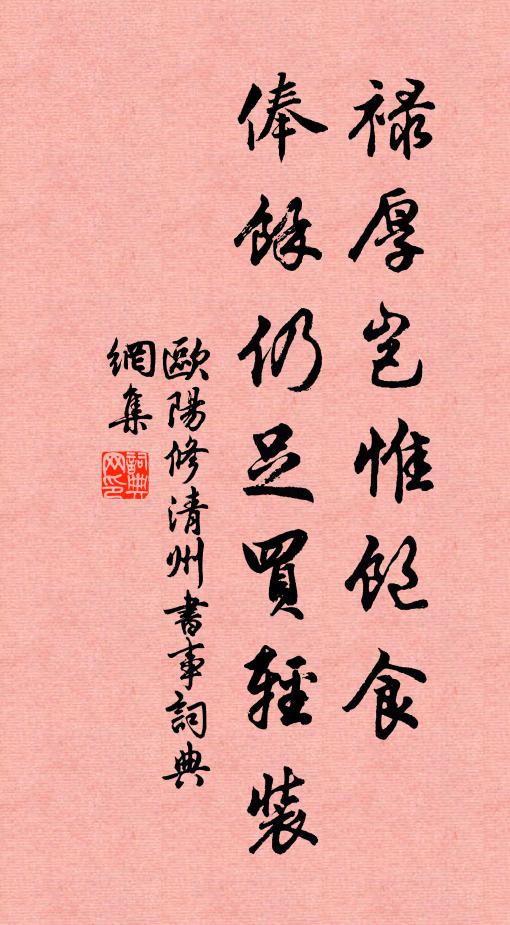 祿厚豈惟飽食
俸餘仍足買輕裝
歐陽修清州書事詞典
網集
詞典網印